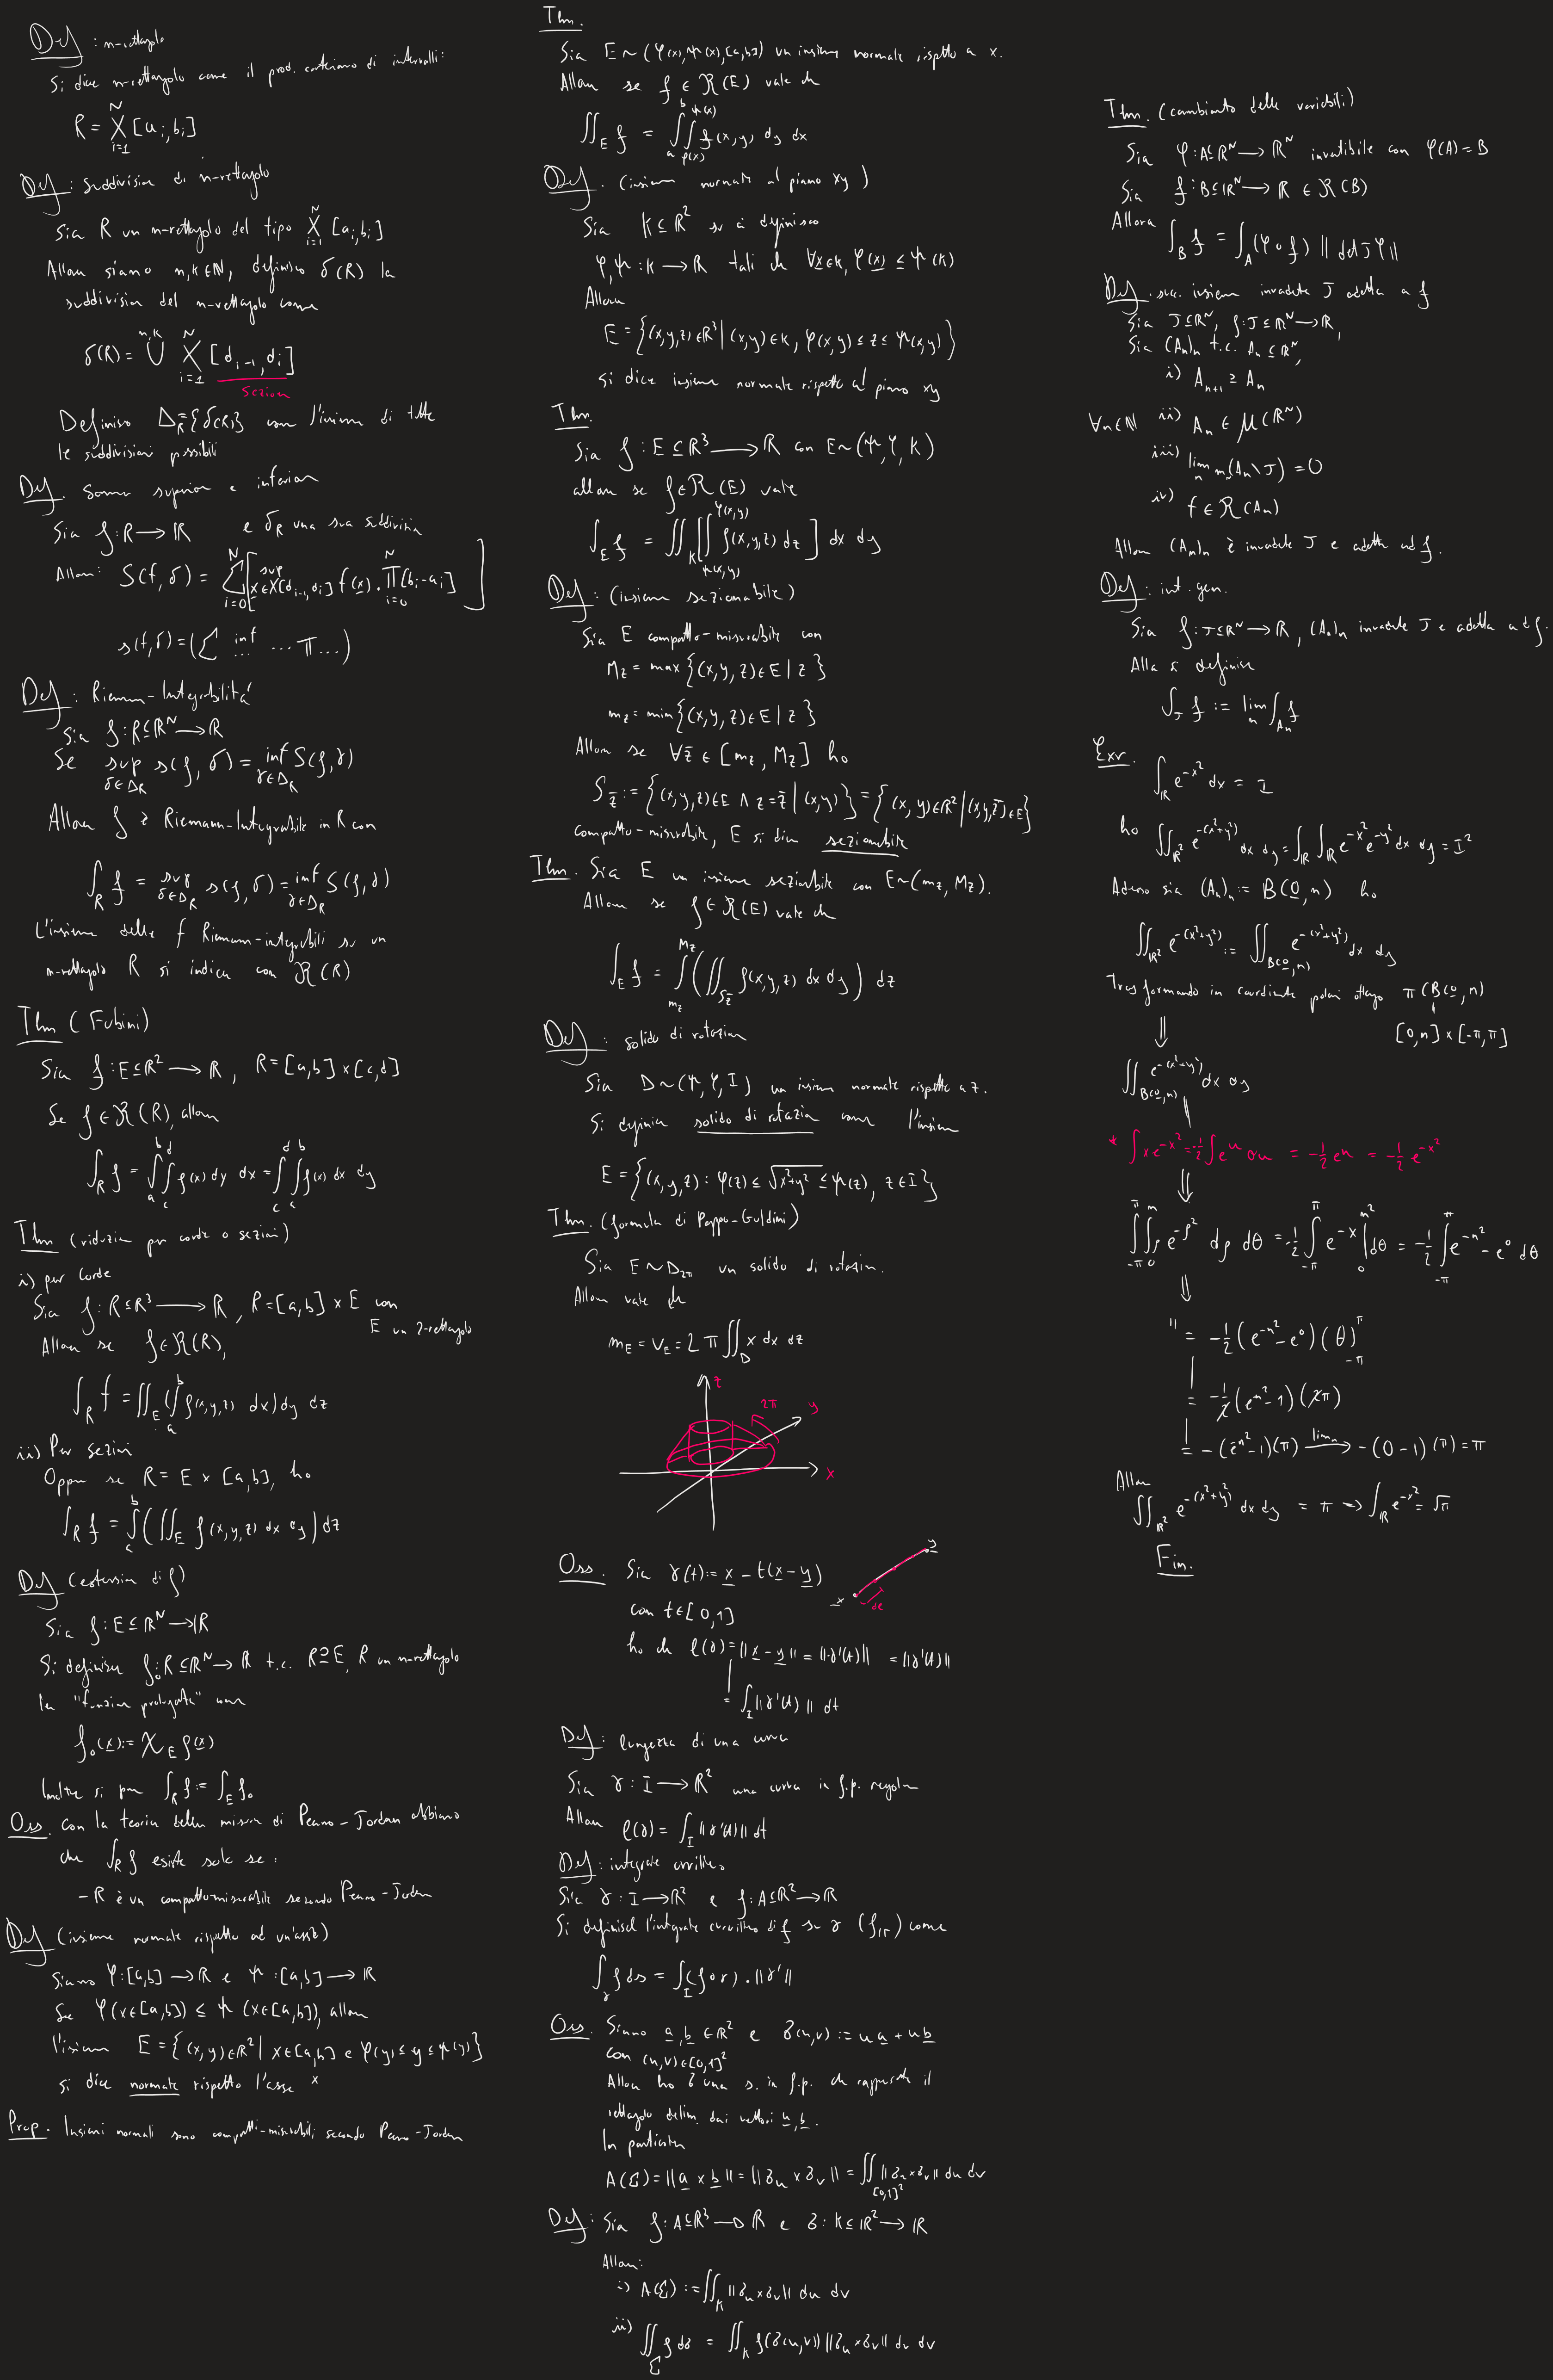 Def: n-rettangolo
Si dice n-rettangolo come il prod. cartesiano di intervalli:
R = X_{i=1}^{N} [a_i, b_i]
Def: suddivision di n-rettangolo
Sia R un n-rettangolo del tipo X_{i=1}^{N} [a_i, b_i]
Allora siano n,k∈ℕ, definisco δ(R) la
suddivision del n-rettangolo come
δ(R) = ⋃^{n,k} X_{i=1}^{N} [d_{i-1}, d_i]
sezion
Definiso Δ_R = {δ(R)} com l'insieme di tutte
le suddivisioni possibili
Def. Somm superior e inferior
Sia f: R → ℝ e δ_R una sua suddivisio
Allora: S(f, δ) = Σ_{i=0}^{N} [sup_{x∈X[d_{i-1}, d_i]} f(x) · Π_{i=0}^{N} [b_i - a_i]]
s(f, δ) = (Σ inf ... Π ...)
Def: Riemann-Integrabilità
Sia f: R⊆ℝ^N → ℝ
Se sup_{δ∈Δ_R} s(f, δ) = inf_{γ∈Δ_R} S(f, γ)
Allora f è Riemann-Integrabile in R con
∫_R f = sup_{δ∈Δ_R} s(f, δ) = inf_{γ∈Δ_R} S(f, δ)
L'insieme delle f Riemann-integrabili su un
n-rettangolo R si indica con ℛ(R)
Thm (Fubini)
Sia f: E⊆ℝ² → ℝ, R = [a,b] × [c,d]
Se f∈ℛ(R), allora
∫_R f = ∫_a^b ∫_c^d f(x) dy dx = ∫_c^d ∫_a^b f(x) dx dy
Thm (riduzion per corde o sezioni)
i) per corde
Sia f: R⊆ℝ³ → ℝ, R = [a,b] × E con
E un 2-rettangolo
Allora se f∈ℛ(R),
∫_R f = ∬_E (∫_a^b f(x,y,z) dx) dy dz
ii) Per sezioni
Oppure se R = E × [a,b], ho
∫_R f = ∫_a^b (∬_E f(x,y,z) dx dy) dz
Def (estension di f)
Sia f: E⊆ℝ^N → ℝ
Si definisce f_0: R⊆ℝ^N → ℝ t.c. R⊇E, R un n-rettangolo
la "funzion prolungata" come
f_0(x) := χ_E f(x)
Inoltre si pon ∫_R f := ∫_E f_0
Oss. con la teoria della misura di Peano-Jordan abbiamo
che ∫_R f esiste solo se:
- R è un compatto-misurabile secondo Peano-Jordan
Def (insieme normale rispetto ad un'assi)
Siano φ: [a,b] → ℝ e ψ: [a,b] → ℝ
Se φ(x∈[a,b]) ≤ ψ(x∈[a,b]), allora
l'insieme E = {(x,y)∈ℝ² | x∈[a,b] e φ(y) ≤ y ≤ ψ(y)}
si dice normale rispetto l'asse x
Prop. Insiemi normali sono compatti-misurabili secondo Peano-Jordan
Thm.
Sia E ~ (φ(x), ψ(x), [a,b]) un insieme normale rispetto a x.
Allora se f∈ℛ(E) vale che
∬_E f = ∫_a^b ∫_{φ(x)}^{ψ(x)} f(x,y) dy dx
Def. (insieme normale al piano xy)
Sia K⊆ℝ² su ci definisco
φ,ψ: K → ℝ tali che ∀x∈K, φ(x) ≤ ψ(K)
Allora
E = {(x,y,z)∈ℝ³ | (x,y)∈K, φ(x,y) ≤ z ≤ ψ(x,y)}
si dice insieme normale rispetto al piano xy
Thm.
Sia f: E⊆ℝ³ → ℝ con E ~ (ψ, φ, K)
allora se f∈ℛ(E) vale
∫_E f = ∬_K [∫_{ψ(x,y)}^{φ(x,y)} f(x,y,z) dz] dx dy
Def: (insieme sezionabile)
Sia E compatto-misurabile con
M_z = max {(x,y,z)∈E | z}
m_z = min {(x,y,z)∈E | z}
Allora se ∀z̄∈[m_z, M_z] ho
S_z̄ := {(x,y,z)∈E ∧ z=z̄ | (x,y)} = {(x,y)∈ℝ² | (x,y,z̄)∈E}
compatto-misurabile, E si dice sezionabile
Thm. Sia E un insieme sezionabile con E ~ (m_z, M_z).
Allora se f∈ℛ(E) vale che
∫_E f = ∫_{m_z}^{M_z} (∬_{S_z̄} f(x,y,z) dx dy) dz
Def: solido di rotazion
Sia D ~ (ψ, φ, I) un insieme normale rispetto a z.
Si definisce solido di rotazion come l'insieme
E = {(x,y,z): φ(z) ≤ √(x²+y²) ≤ ψ(z), z∈I}
Thm. (formula di Pappo-Guldini)
Sia E ~ D_{2π} un solido di rotazion.
Allora vale che
m_E = V_E = 2π ∬_D x dx dz
z
2π
y
x
Oss. Sia γ(t) := x - t(x-y)
con t∈[0,1]
y
x
dℓ
ho che ℓ(γ) = ||x-y|| = ||γ'(t)|| = ||γ'(t)||
= ∫_I ||γ'(t)|| dt
Def: lungezza di una curva
Sia γ: I → ℝ² una curva in f.p. regolar
Allora ℓ(γ) = ∫_I ||γ'(t)|| dt
Def: integrale curvilineo
Sia γ: I → ℝ² e f: A⊆ℝ² → ℝ
Si definisce l'integrale curvilineo di f su γ (f_{|Γ}) come
∫_γ f ds = ∫_I (f∘γ) · ||γ'||
Oss. Siano a,b ∈ℝ² e σ(u,v) := ua + ub
con (u,v)∈[0,1]²
Allora ho σ una s. in f.p. che rappresenta il
rettangolo delim. dai vettori a,b.
In particolar
A(Σ) = ||a × b|| = ||σ_u × σ_v|| = ∬_{[0,1]²} ||σ_u × σ_v|| du dv
Def: Sia f: A⊆ℝ³ → ℝ e σ: K⊆ℝ² → ℝ
Allora:
i) A(Σ) := ∬_K ||σ_u × σ_v|| du dv
ii) ∬_Σ f dσ = ∬_K f(σ(u,v)) ||σ_u × σ_v|| du dv
Thm. (cambiamento delle variabili)
Sia φ: A⊆ℝ^N → ℝ^N invertibile con φ(A) = B
Sia f: B⊆ℝ^N → ℝ ∈ℛ(B)
Allora
∫_B f = ∫_A (φ∘f) ||det Jφ||
Def. suc. insiem invadente J adatta a f
Sia J⊆ℝ^N, f: J⊆ℝ^N → ℝ,
Sia (A_n)_n t.c. A_n⊆ℝ^N,
i) A_{n+1} ⊇ A_n
∀n∈ℕ ii) A_n ∈ μ(ℝ^N)
iii) lim_n m(A_n \ J) = 0
iv) f∈ℛ(A_n)
Allora (A_n)_n è invadente J e adatta ad f.
Def: int. gen.
Sia f: J⊆ℝ^N → ℝ, (A_n)_n invadente J e adatta ad f.
Allora si definisce
∫_J f := lim_n ∫_{A_n} f
Exr.
∫_ℝ e^{-x²} dx = I
ho ∬_{ℝ²} e^{-(x²+y²)} dx dy = ∫_ℝ ∫_ℝ e^{-x²} e^{-y²} dx dy = I²
Adesso sia (A_n)_n := B(0,n) ho
∬_{ℝ²} e^{-(x²+y²)} := ∬_{B(0,n)} e^{-(x²+y²)} dx dy
Trasformando in coordinate polari ottengo π(B(0,n))
[0,n] × [-π,π]
⇓
∬_{B(0,n)} e^{-(x²+y²)} dx dy
* ∫ x e^{-x²} = -½ ∫ e^u du = -½ e^u = -½ e^{-x²}
⇓
∫_{-π}^{π} ∫_0^n ρ e^{-ρ²} dρ dθ = -½ ∫_{-π}^{π} e^{-x} |_0^{n²} dθ = -½ ∫_{-π}^{π} e^{-n²} - e^0 dθ
⇓
" = -½ (e^{-n²} - e^0) (θ)_{-π}^{π}
= -½ (e^{-n²} - 1) (2π)
= -(e^{-n²} - 1)(π) →^{lim_n} -(0-1)(π) = π
Allora
∬_{ℝ²} e^{-(x²+y²)} dx dy = π ⇒ ∫_ℝ e^{-x²} = √π
Fin.